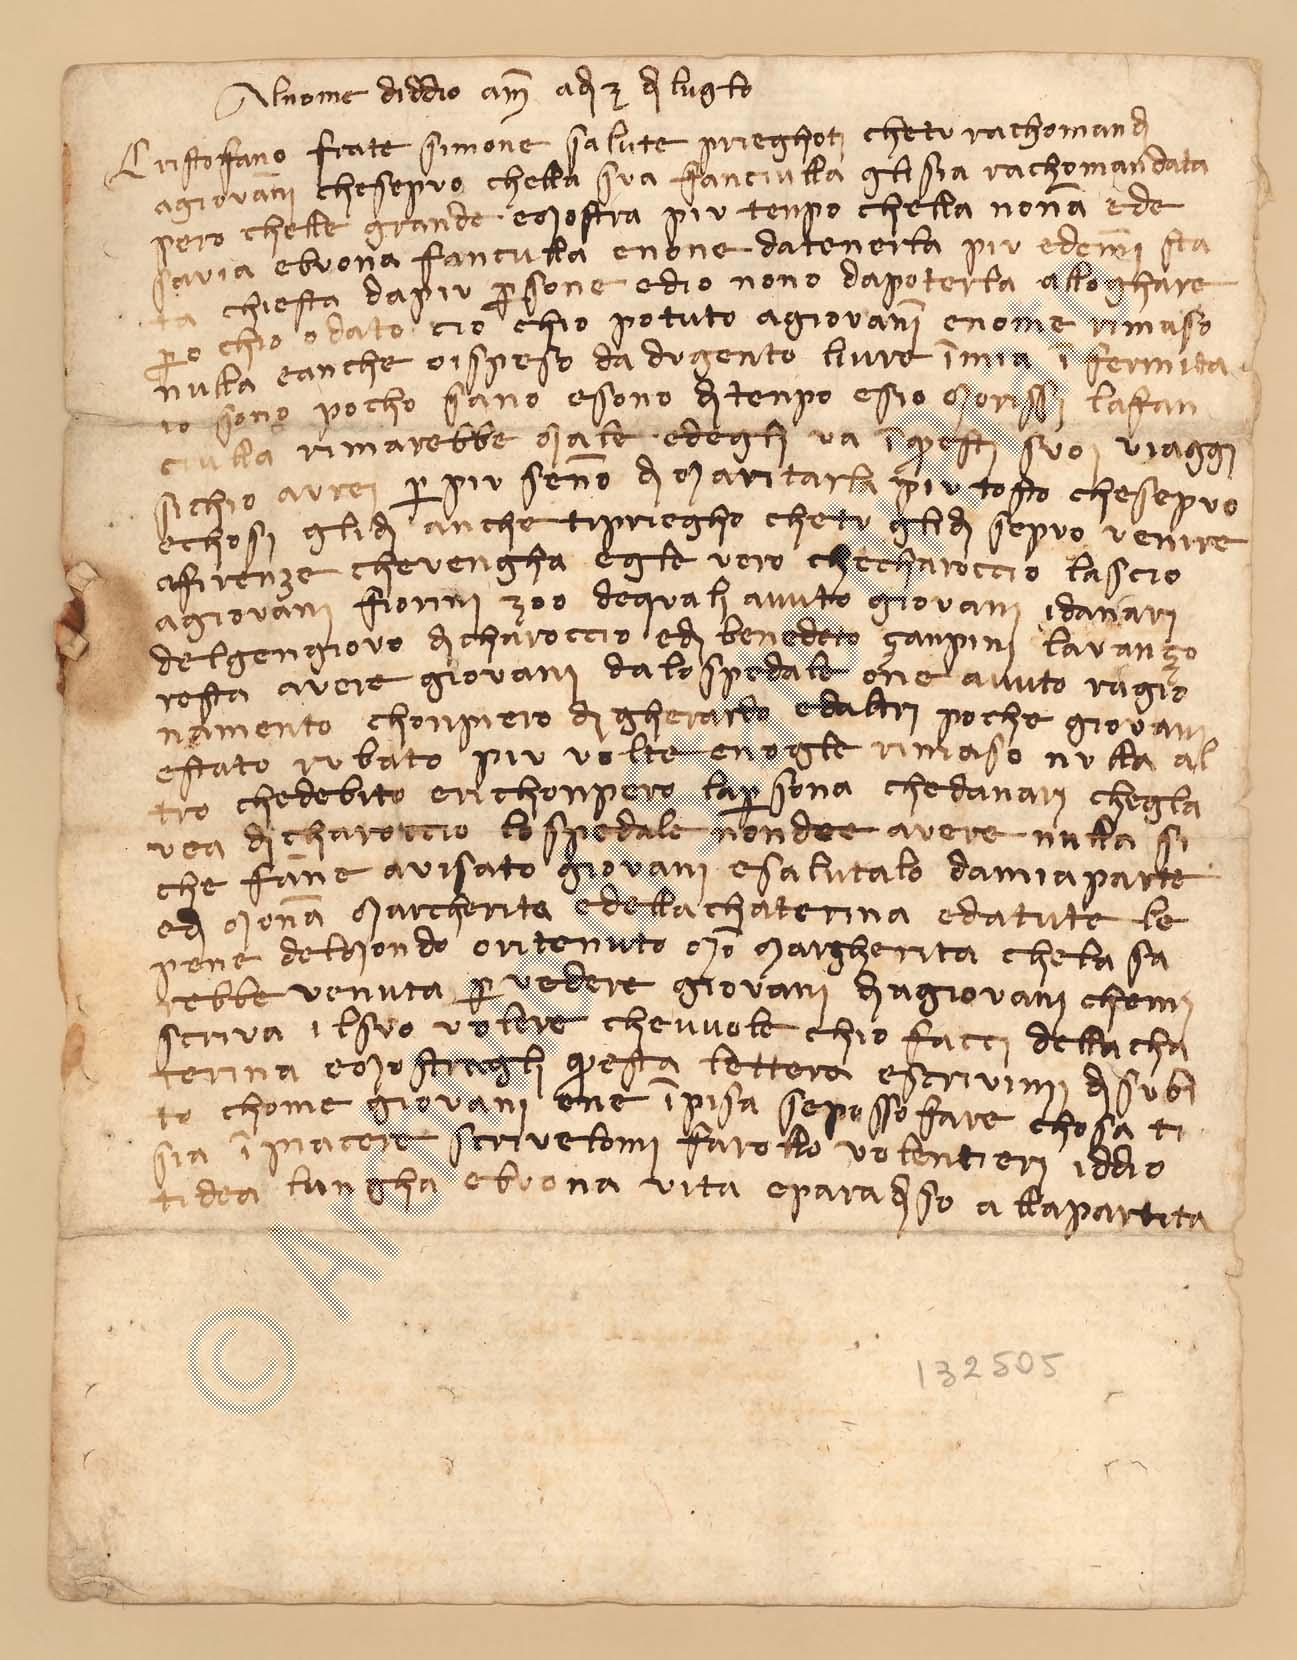 Al nome diddio am̄ adj 3 dj luglo
Cristofano frate simone salute prieghotj chetu rachomandj
agiovānj chesepuo chella sua fanciulla gli sia rachomandata
pero chelle grande emostra piu tenpo chella nonā ede
savia ebuona fanculla enone datenerla piu edemī sta
ta chiesta dapiu p̱sone edio nono dapoterla alloghare
p̱o chio odato cio chio potuto agiovanī enome rimaso
nulla eanche oispeso dadugento livre īmia īfermita
io sono pocho sano esono dj tenpo esio morissj laffan
ciulla rimarebbe male edeglj va īquestj suoj viaggj
sichio avrej p̱ piu seño dj maritarla piu tosto chesepuo
echosj glidj anche tiprieghо chetu glidj sepuo venire
afirenze chevengha egle vero checharoccio lascio
agiovanj fiorinj 300 dequalj avuto giovanj idanarj
delgengiovo djcharoccio edj benedeto zanpinj lavanzo
resta avere giovanj dalospedale one avuto ragio
namento chonpiero dj gherardo edaltrj poche giovanj
estato rubato piu volte enogle rimaso nulla al
tro chedebito erichonpero lap̱sona chedanarj chegla
vea djcharoccio lospedale nondee avere nulla si
che fāne avisato giovanj esalutalo damiaparte
edj monā margherita edellachaterina edatute le
pene delmondo oritenuto mō margherita chela sa
rebbe venuta p̱ vedere giovanj djagiovanj chemj
scriva ilsuo volere chevvole chio faccj dellacha
terina emostraglj questa lettera escrivimj dj subi
to chome giovanj ene īpisa seposso fare chosa ti
sia īpiacere scrivelomi farollo volentierj iddio
tidea lungha ebuona vita eparadjso allapartita
132505